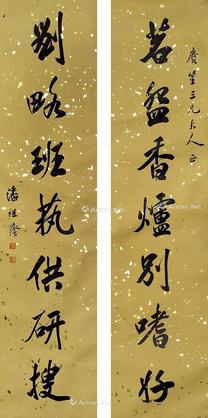 廣笙三兄大人正
茗盌香爐別嗜好
劉略班蓺供研搜
潘祖蔭